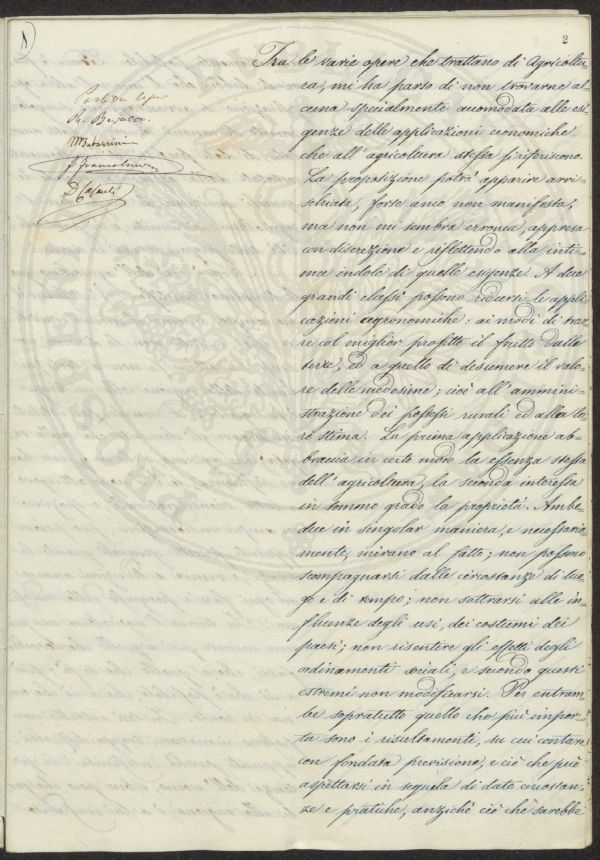 1)
2
Tra le varie opere che trattano di Agricoltu-
ra, mi ha parso di non trovarne al-
cuna specialmente accomodata alle esi-
genze delle applicazioni economiche
che all'agricoltura stessa si riferiscono.
La proposizione potrà apparire arri-
schiata, forse anco non manifesta;
ma non mi sembra erronea, appresa
con discrezione e riflettendo alla inti-
ma indole di quelle esigenze. A due
grandi classi possono ridursi le appli-
cazioni agronomiche: ai modi di trar-
re col miglior profitto il frutto dalle
terre, ed a quello di desumere il valo-
re delle medesime; cioè all'ammini-
strazione dei possessi rurali ed alla lo-
ro stima. La prima applicazione ab-
braccia in certo modo la essenza stessa
dell'agricoltura, la seconda interessa
in sommo grado la proprietà. Ambe-
due in singolar maniera, e necessaria-
mente, mirano al fatto; non possono
scompagnarsi dalle circostanze di luo-
go e di tempo; non sottrarsi alle in-
fluenze degli usi, dei costumi dei
paesi; non risentire gli effetti degli
ordinamenti sociali, e secondo questi
estremi non modificarsi. Per entram-
be sopratutto quello che più impor-
ta sono i risultamenti, su cui contare
con fondata previsione, e ciò che può
aspettarsi in seguela di date circostan-
ze e pratiche, anziché ciò che sarebbe